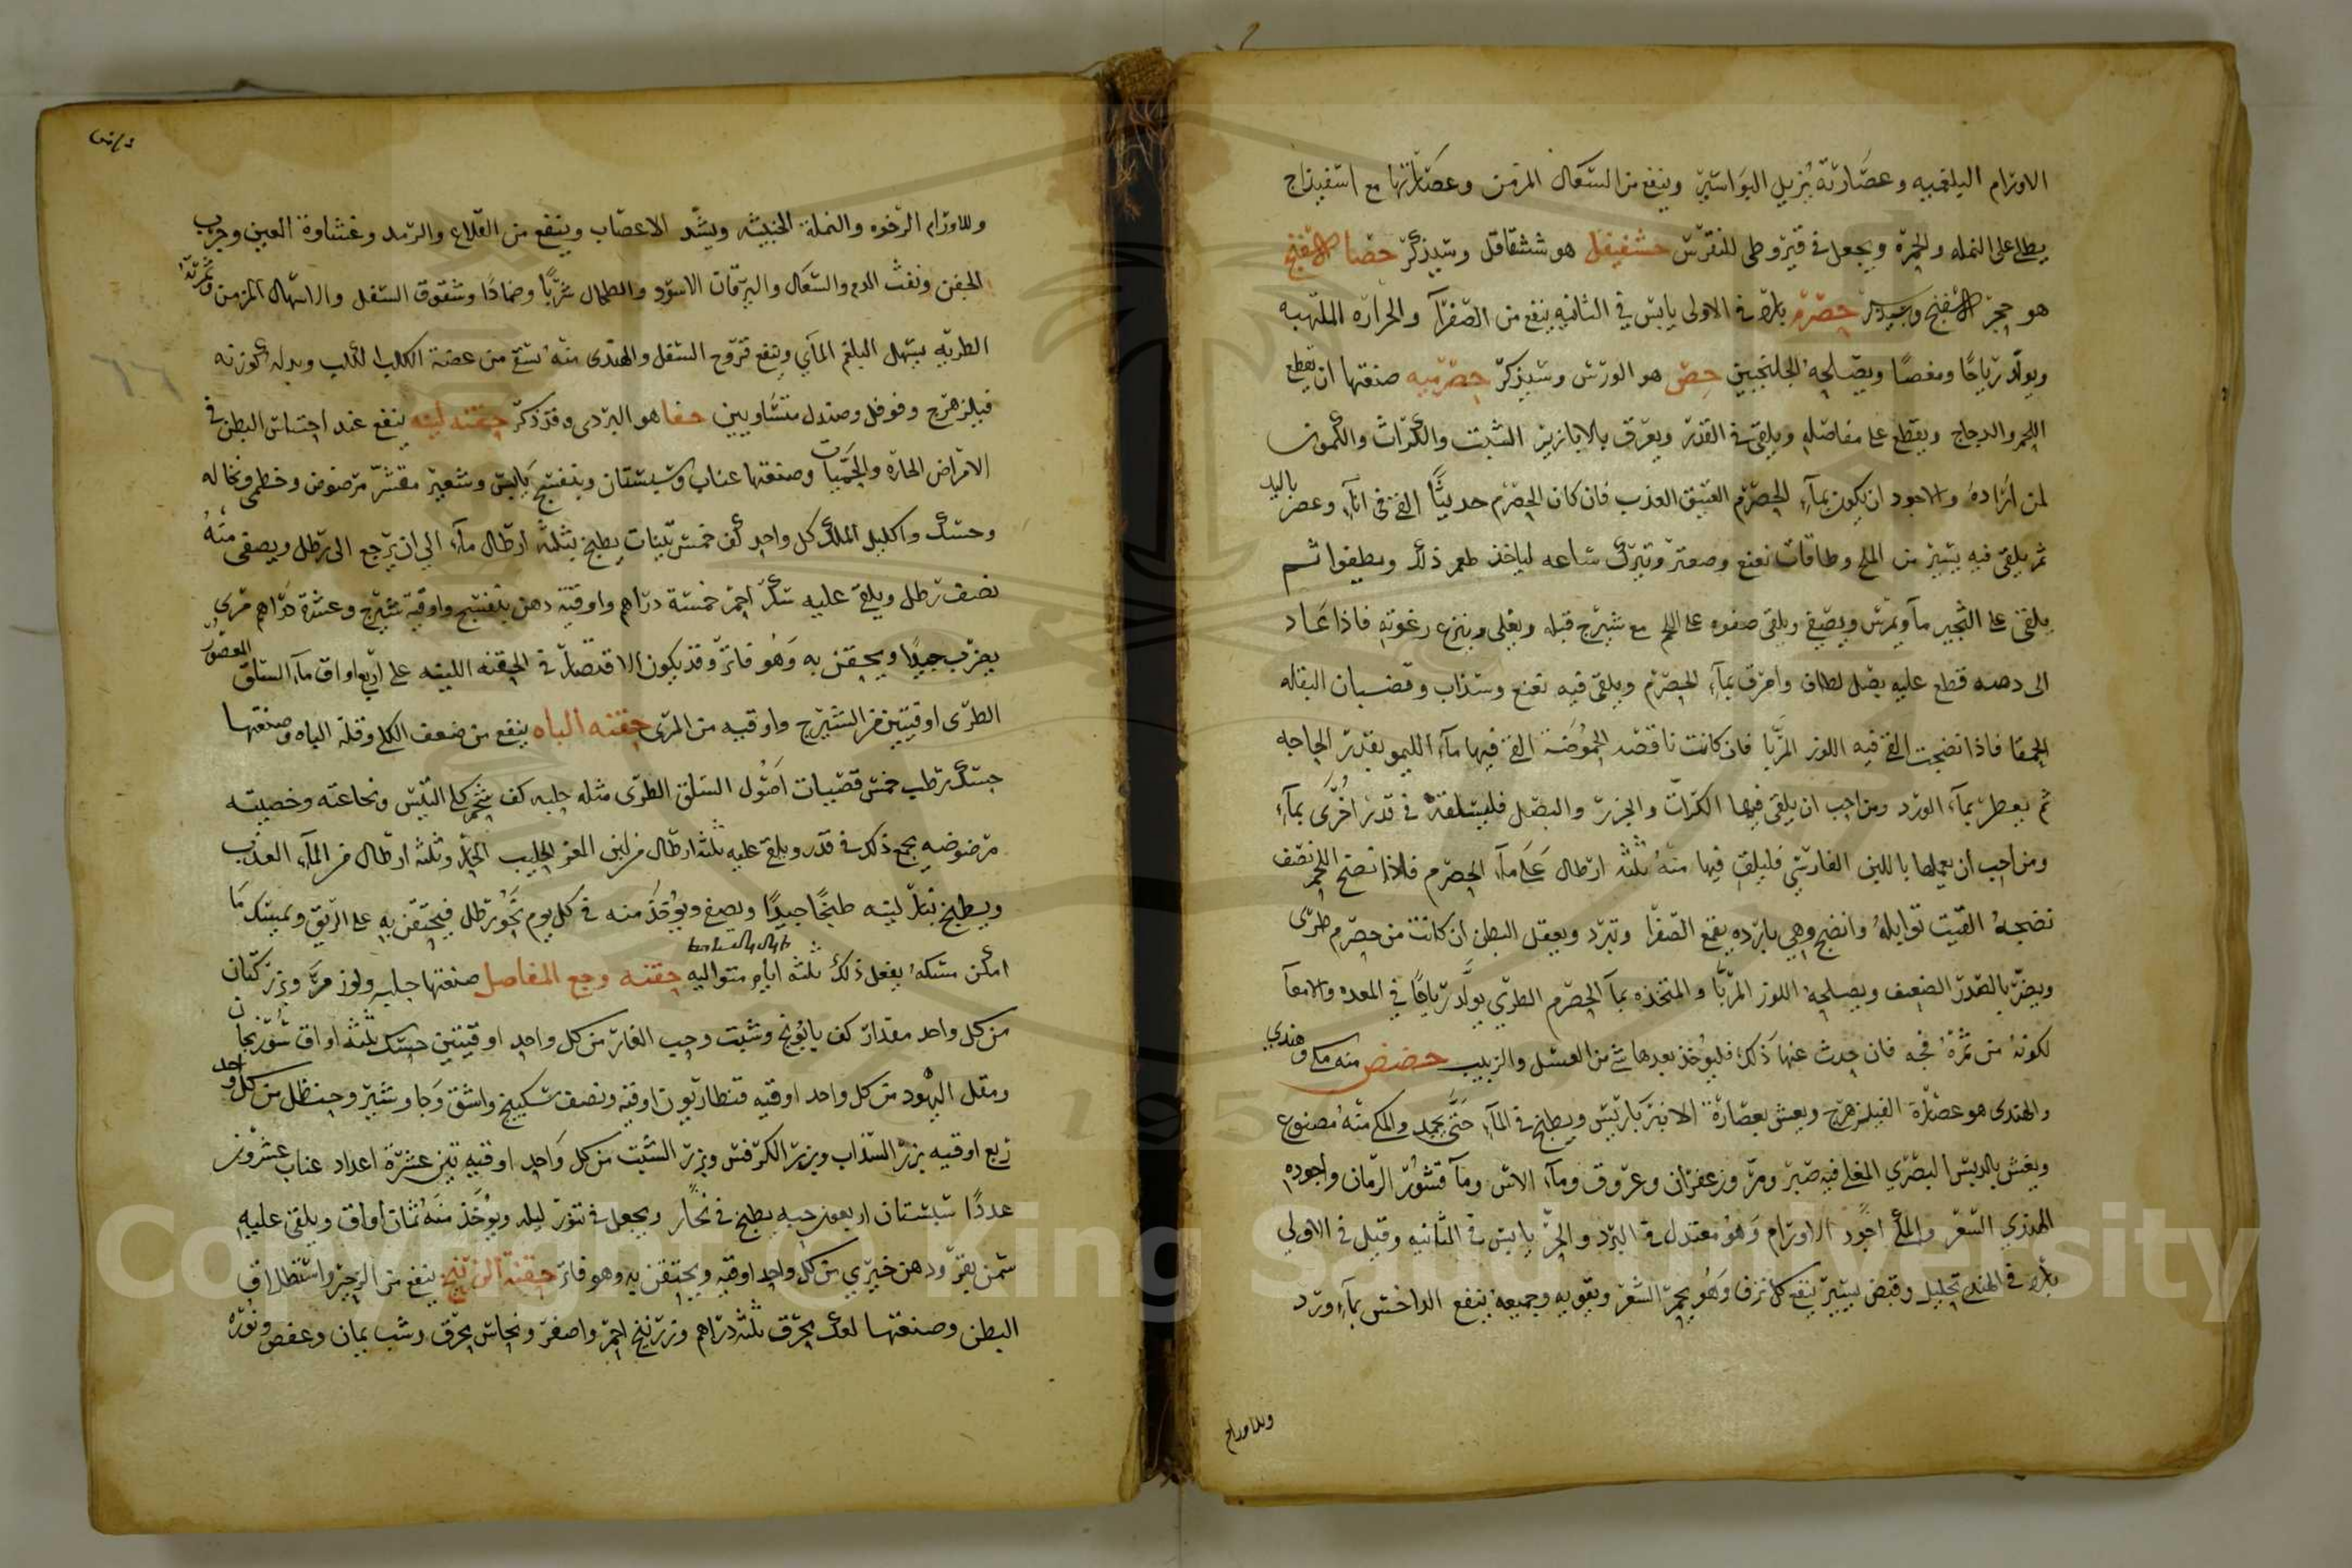 الاورام البلغميه وعصارته يزيل البواسير وينفع من السعال المزمن وعصارتها مع اسفيداج
يطلى على النمله والحمرة ويجعل في قيروطى للنقرس حشفيفل هو ششقاقل وسيذكر حصاة الاسفنج
هو حجر الاسفنج وسيذكر حصرم بارد في الاولى يابس في الثانيه ينفع من الصفرآ والحرارة الملتهبه
ويولد رياحًا ومغصًا ويصلحه الجلنجبين حص هو الورس وسيذكر حصرميه صنعتها ان يقطع
اللحم والدجاج ويقطع على مفاصله ويلقى في القدر ويعرق بالابازيز الشبت والكراث والكمون
لمن اراده والاجود ان يكون بمآء الحصرم العتيق العذب فان كان الحصرم حديثًا القى في انآء وعصر باليد
ثم يلقى فيه يسير من الملح وطاقات نعنع وصعتر وتترك ساعه لياخذ طعم ذلك ويطيفوا ثم
يلقى على الثجير مآ ويمرس ويصفى ويلقى صفوه على اللحم مع شيرج قبله ويغلى وينزع رغوته فاذا عاد
الى دهنه قطع عليه بصل لطاف وامرق بمآء الحصرم ويلقى فيه نعنع وسذاب وقضبان البقله
الحمقا فاذا نضجت القى فيه اللوز المربا فان كانت ناقصه الحموضة القى فيها مآء الليمو بقدر الحاجه
ثم يعطر بمآء الورد ومن احب ان يلقى فيها الكراث والجزر والبصل فليسلقه في قدر اخرى بمآء
ومن احب ان يعملها باللبن الفارسي فليلق فيها منه ثلثه ارطال على مآء الحصرم فاذا نضج اللحم نصف
نضجه القيت توابله وانضج وهي بارده يقمع الصفرا وتبرد ويعقل البطن ان كانت من حصرم طرى
ويضر بالصدر الضعيف ويصلحه اللوز المربا والمتخذه بمآ الحصرم الطري يولد رياحًا في المعده والامعآ
لكونه من ثمرة فجه فان حدث عنها ذلك فليوخذ بعدها شئ من العسل والزبيب حضض منه مكي وهندي
والهندى هو عصارة الفيلزهرج ويغش بعصارة الانبرباريس ويطبخ في المآء حتى يجمد والمكي منه مصنوع
ويغش بالدبس البصري المغلي فيه صبر ومر وزعفران وعروق ومآء الاس ومآ قشور الرمان واجوده
الهندي الشعر والمكي اجود الاورام وهو معتدل في البرد والحر يابس في الثانيه وقيل في الاولي
بارد في الهندي تحليل وقبض يسير ينفع كل نزف وهو يحمر الشعر ويقويه وجميعه ينفع الداحس بمآء ورد
وللاورام
وللاورام الرخوه والنملة الخبيثه ويشد الاعصاب وينفع من القلاع والرمد وغشاوة العين وجرب
الجفن ونفث الدم والسعال واليرقان الاسود والطحال شربًا وضمادًا وشقوق السفل والاسهال المزمن وثمرته
الطريه يسهل البلغم المآي وينفع قروح السفل والهندى منه يسقى من عضة الكلب الكلب وبدله كوزنه
فيلزهرج وفوفل وصندل متساويين حفا هو البردى وقد ذكر حقنه لينه ينفع عند احتباس البطن في
الامراض الحاره والحميات وصنعتها عناب وسبستان وبنفسج يابس وشعير مقشر مرضوض وخطمى ونخاله
وحسك واكليل الملك كل واحد كف خمس تينات يطبخ بثلثه ارطال مآء الى ان يرجع الى رطل ويصفى منه
نصف رطل ويلقى عليه سكر احمر خمسة دراهم واوقية دهن بنفسج واوقية شيرج وعشرة دراهم مري
يضرب جيدًا ويحقن به وهو فاتر وقد يكون الاقتصار في الحقنه اللينه على اربع اواق مآء السلق المعصور
الطرى اوقيتين من الشيرج واوقيه من المرى حقنه الباه ينفع من ضعف الكلى وقلة الباه وصنعتها
حسك رطب خمس قصبات اصول السلق الطرى مثله حلبه كف شحم كلى التيس ونخاعته وخصيته
مرضوضيه يجمع ذلك في قدر ويلقى عليه ثلثه ارطال من لبن المعز الحليب الجيد وثلثه ارطال من المآء العذب
ويطبخ بنار لينه طبخًا جيدًا ويصفى ويوخذ منه في كل يوم نحو رطل فيحتقن به على الريق ويمسك ما
امكن مسكه يفعل ذلك ثلثه ايام متواليه حقنه وجع المفاصل صنعتها حلبه ولوز مر وبزر كتان
من كل واحد مقدار كف بابونج وشبت وحب الغار من كل واحد اوقيتين حسك ثلثه اواق سورنجان
ومقل اليهود من كل واحد اوقيه قنطاريون اوقيه ونصف سكبينج واشق وجاوشير وحنظل من كل واحد
ربع اوقيه بزر السذاب وبزر الكرفس وبزر الشبت من كل واحد اوقيه تين عشرة اعداد عناب عشرون
عددًا سبستان اربعون حبه يطبخ في نخار ويجعل في تنور ليله ويوخذ منه ثمان اواق ويلقى عليه
سمن بقر ودهن خيري من كل واحد اوقيه ويحتقن به وهو فاتر حقنة الزرنيخ ينفع من الزحير واستطلاق
البطن وصنعتها لعك يحرق ثلثه دراهم وزرنيخ احمر واصفر ونحاس يحرق وشب يمان وعفص ونوره
Copyright © King Saud University
1957